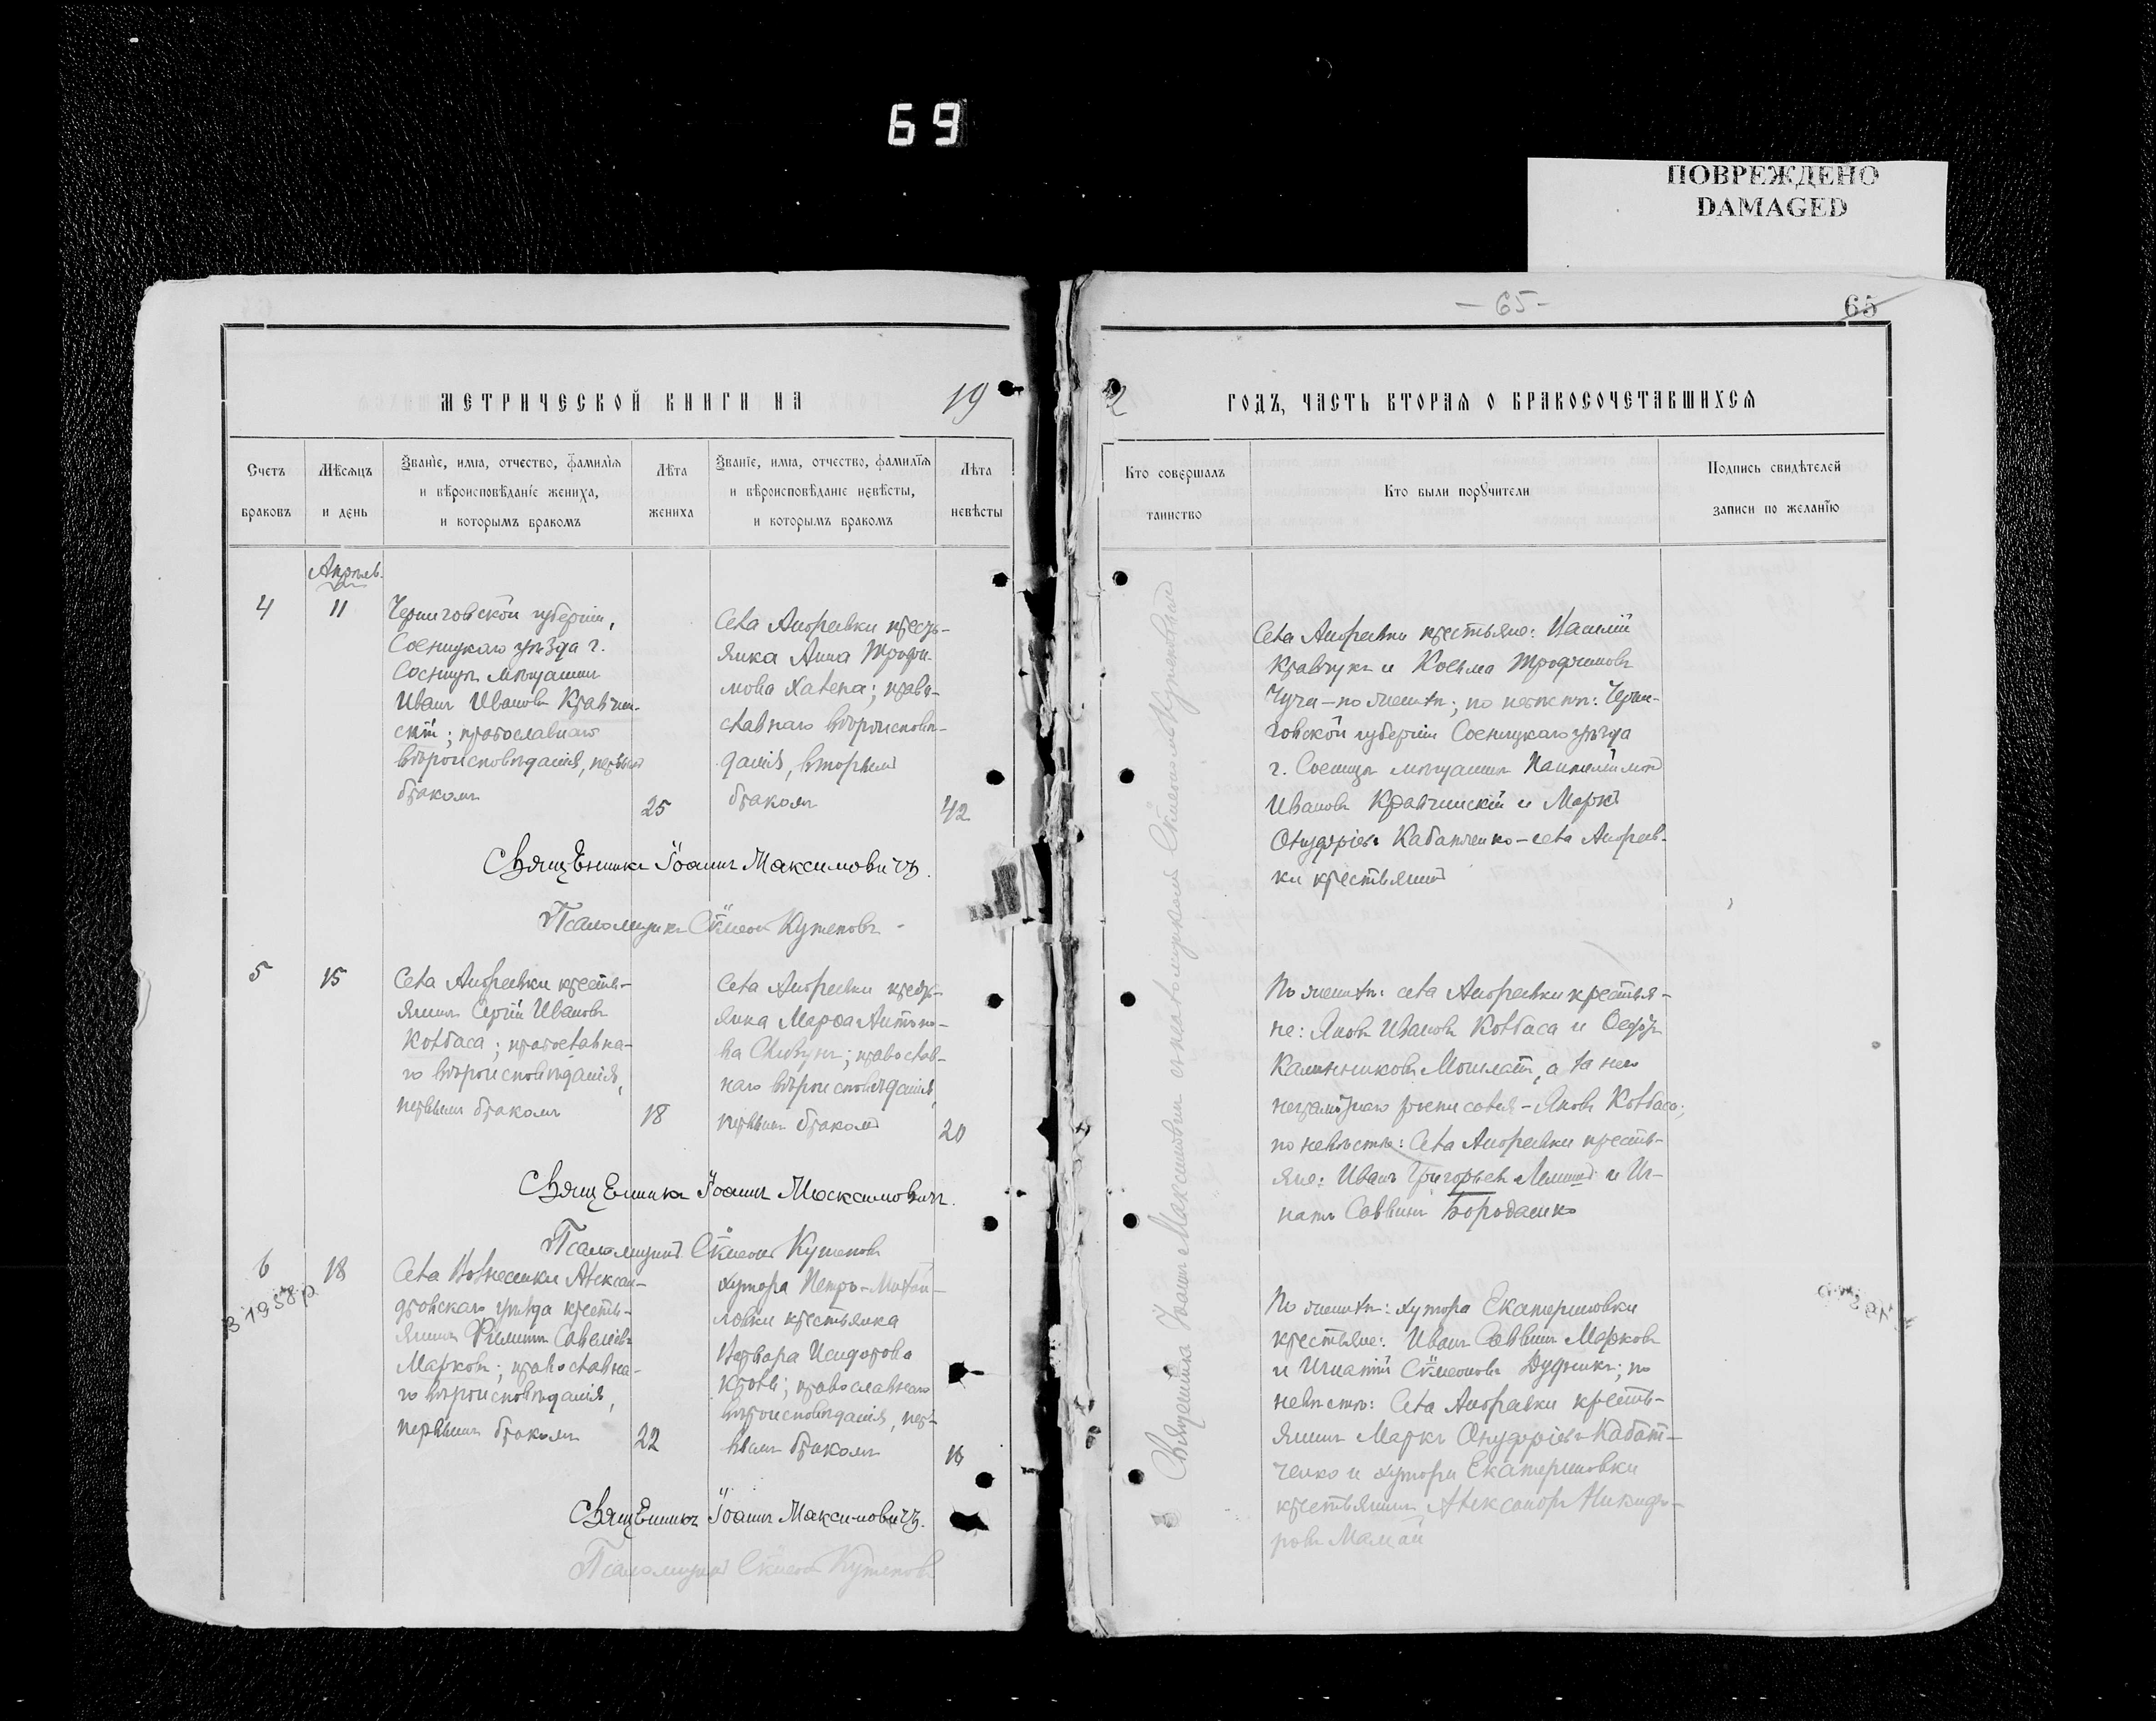 69
ПОВРЕЖДЕНО
DAMAGED
- 65 -
65
МЕТРИЧЕСКОЙ КНИГИ НА 19
2 ГОДЪ, ЧАСТЬ ВТОРАЯ О БРАКОСОЧЕТАВШИХСЯ
Счетъ браковъ
Мѣсяцъ и день
Званіе, имя, отчество, фамилія и вѣроисповѣданіе жениха, и которымъ бракомъ
Лѣта жениха
Званіе, имя, отчество, фамилія и вѣроисповѣданіе невѣсты, и которымъ бракомъ
Лѣта невѣсты
Кто совершалъ таинство
Кто были поручители
Подпись свидѣтелей записи по желанію
Апрѣль
4
11
Черниговской губерніи,
Сосницкаго уѣзда г.
Сосницы мѣщанинъ
Иванъ Ивановъ Кравчин-
скій; православнаго
вѣроисповѣданія, первымъ
бракомъ
25
Села Андреевки кресть-
янка Анна Трофи-
мова; право-
славнаго вѣроисповѣ-
данія, вторымъ
бракомъ
42
Села Андреевки крестьяне: Василій
Кравчукъ и Косьма Трофимовъ
по женихѣ; по невѣстѣ: Черни-
говской губерніи Сосницкаго уѣзда
г. Сосницы мѣщанинъ Пантелеимонъ
Ивановъ Кравчинскій и Маркъ
Онуфріевъ Кабатченко - села Андреев-
ки крестьянинъ
Священникъ Іоаннъ Максимовичъ.
Псаломщикъ Сѵмеонъ Кутеповъ
5
15
Села Андреевки кресть-
янинъ Сергій Ивановъ
Колбаса; православна-
го вѣроисповѣданія,
первымъ бракомъ
18
Села Андреевки кресть-
янка Марѳа Антоно-
ва; православ-
наго вѣроисповѣданія,
первымъ бракомъ
20
По женихѣ: села Андреевки крестья-
не: Яковъ Ивановъ Колбаса и Ѳедоръ
а за него
неграмотнаго росписался - Яковъ Колбаса;
по невѣстѣ: Села Андреевки кресть-
яне: Иванъ Григорьевъ и Иг-
натъ Саввинъ Бородавко
Священникъ Іоаннъ Максимовичъ.
Псаломщикъ Сѵмеонъ Кутеповъ
6
18
В 1958 р.
Села Вознесенки Алексан-
дровскаго уѣзда кресть-
янинъ Филиппъ Савельевъ
Марковъ; православна-
го вѣроисповѣданія,
первымъ бракомъ
22
хутора Петро-Михай-
ловки крестьянка
Варвара Исидорова
православнаго
вѣроисповѣданія, пер-
вымъ бракомъ
По женихѣ: хутора Екатериновки
крестьяне: Иванъ Саввинъ Марковъ
и Игнатій Сѵмеоновъ Дудникъ; по
невѣстѣ: Села Андреевки кресть-
янинъ Маркъ Онуфріевъ Кабат-
ченко и хутора Екатериновки
крестьянинъ Александръ Никифо-
ровъ Мамай
Священникъ Іоаннъ Максимовичъ.
Псаломщикъ Сѵмеонъ Кутеповъ
Священникъ Іоаннъ Максимовичъ съ псаломщикомъ Сѵмеономъ Кутеповымъ